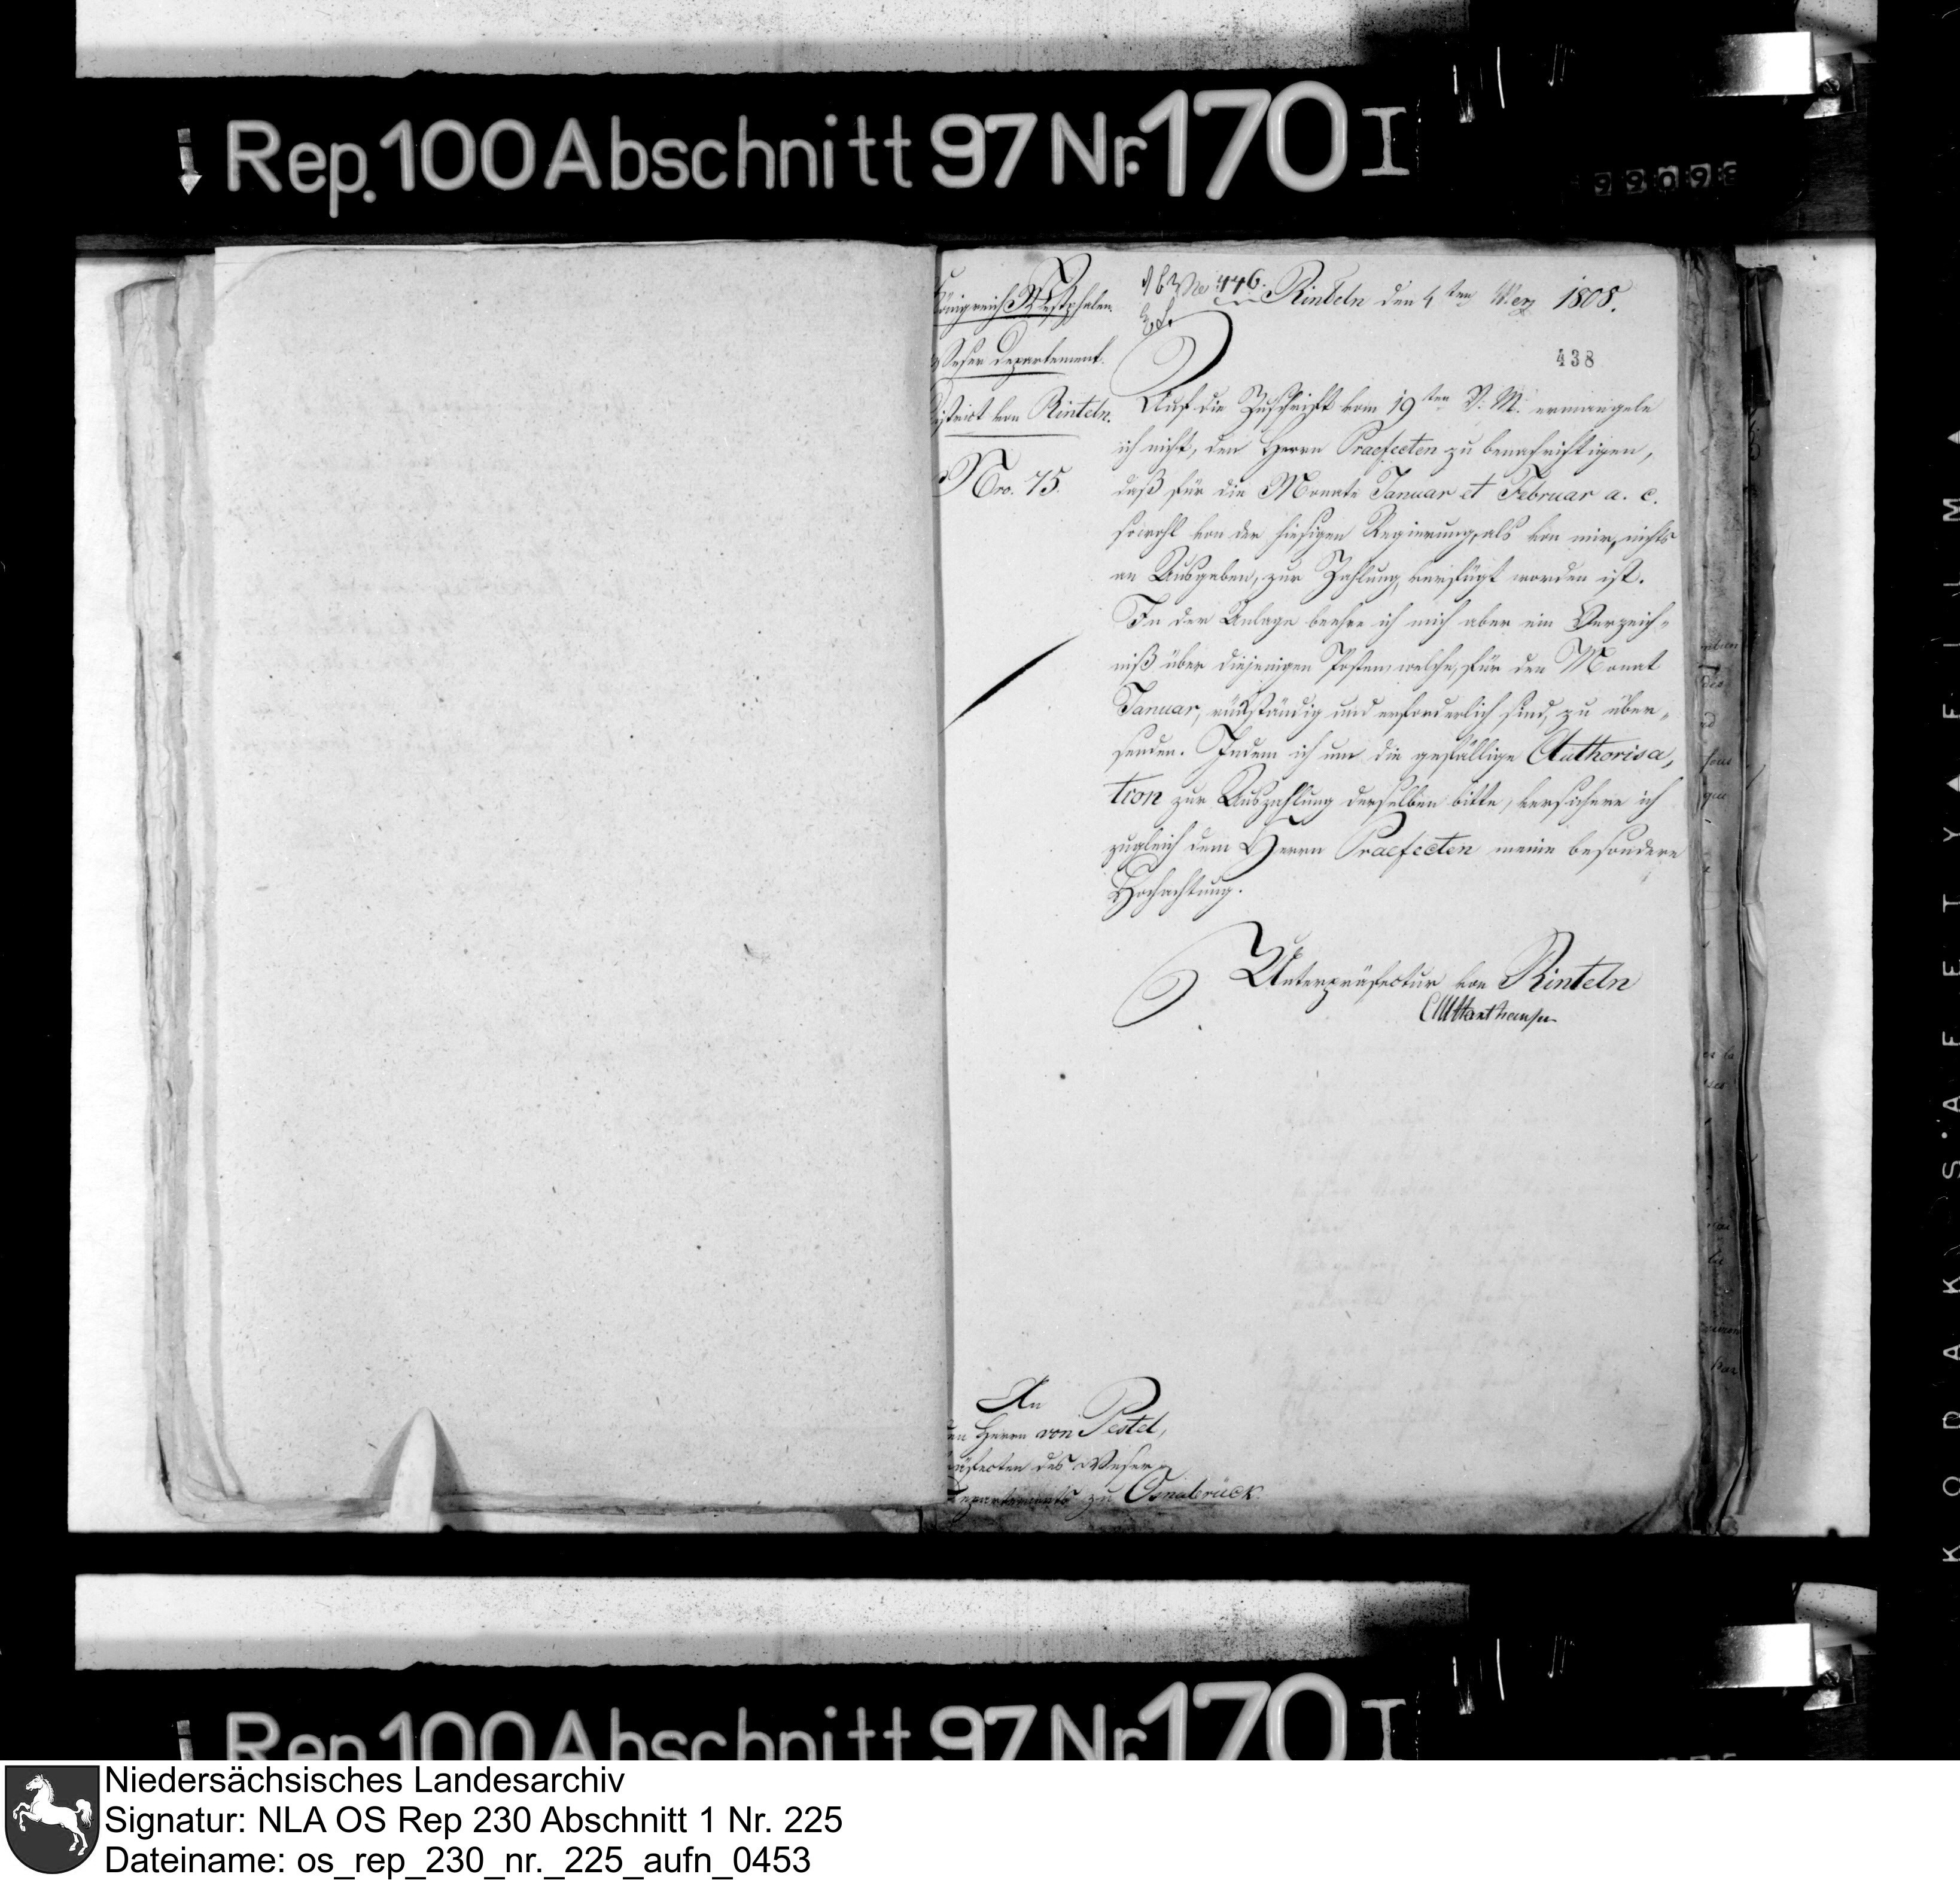 Rep. 100 Abschnitt 97 Nr. 170 I
99098
Königreich Westphalen.
Weser Departement.
District von Rinteln.
Nro. 75.
No 446.
Rinteln den 4ten Merz 1808.
438
Auf die Zuschrift vom 19ten V. M. ermangele
ich nicht, den Herrn Praefecten zu benachrichtigen,
daß für die Monate Januar et Februar a. c.
sowohl von der hiesigen Regierung, als von mir, nichts
an Ausgaben, zur Zahlung, verfügt worden ist.
In der Anlage beehre ich mich aber ein Verzeich-
niß über diejenigen Posten welche, für den Monat
Januar, rückständig und erforderlich sind, zu über-
senden. Indem ich um die gefällige Authorisa-
tion zur Auszahlung derselben bitte, versichere ich
zugleich dem Herrn Praefecten meine besondere
Hochachtung.
Unterpräfectur von Rinteln
An
den Herrn von Pestel,
Präfecten des Weser-
Departements zu Osnabrück.
KODAK SAFETY FILM
Rep. 100 Abschnitt 97 Nr. 170 I
Niedersächsisches Landesarchiv
Signatur: NLA OS Rep 230 Abschnitt 1 Nr. 225
Dateiname: os_rep_230_nr._225_aufn_0453